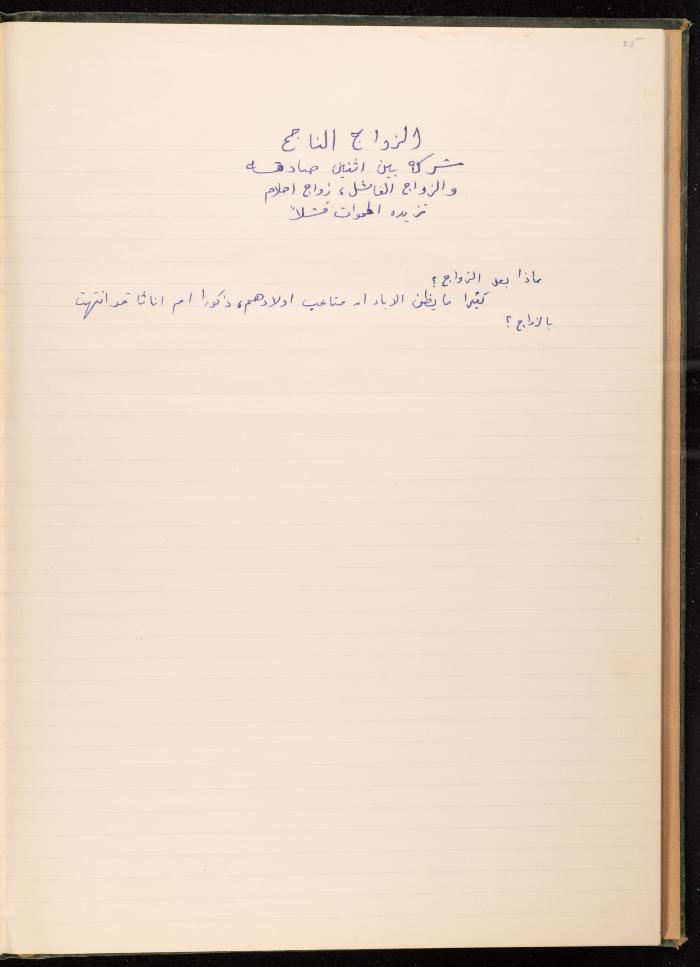 25
الزواج الناجح
شركة بين اثنين صادقه
والزواج الفاشل، زواج احلام
تزيده فشلاً
ماذا بعد الزواج؟
كثيرا ما يظن الاباء ان متاعب اولادهم، ذكورا ام اناثا قد انتهت
بالزواج؟